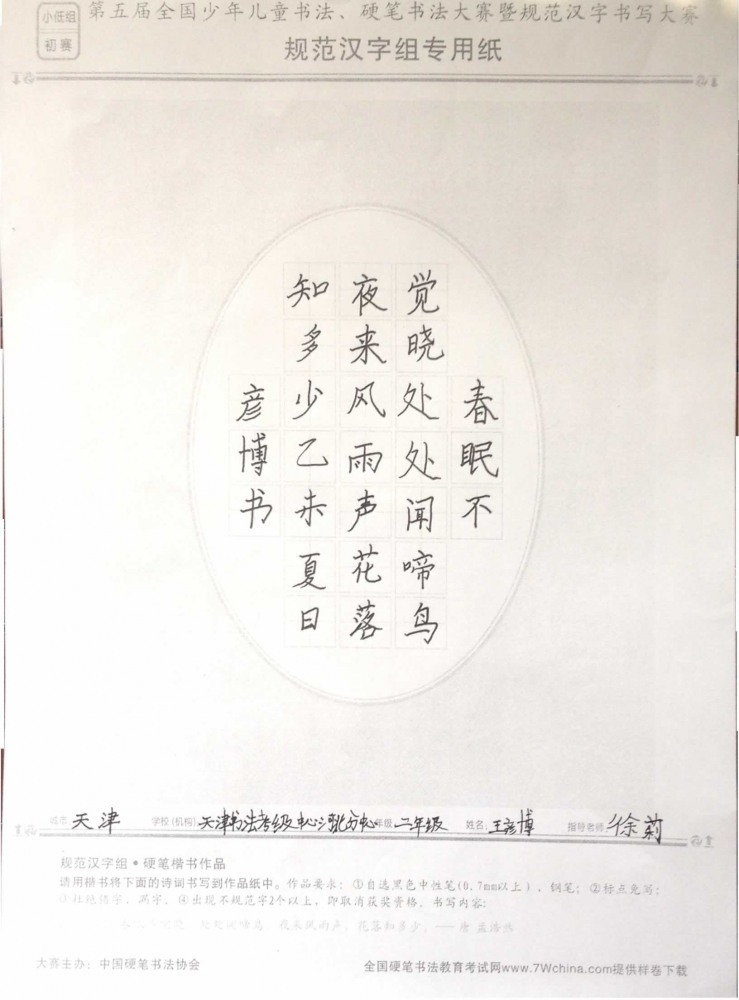 小低组
初赛
第五届全国少年儿童书法、硬笔书法大赛暨规范汉字书写大赛
规范汉字组专用纸
春眠不
觉晓处处闻啼鸟
夜来风雨声花落
知多少乙未夏日
彦博书
城市: 天津 学校(机构) 天津书法考级中心河北分中心 年级: 二年级 姓名: 王彦博 指导老师: 徐莉
规范汉字组·硬笔楷书作品
请用楷书将下面的诗词书写到作品纸中。作品要求:①自选黑色中性笔(0.7mm以上)、钢笔;②标点免写;
③杜绝错字、漏字。④出现不规范字2个以上,即取消获奖资格。书写内容:
处处闻啼鸟。夜来风雨声,花落知多少。——唐 孟浩然
大赛主办:中国硬笔书法协会 全国硬笔书法教育考试网www.7Wchina.com提供样卷下载